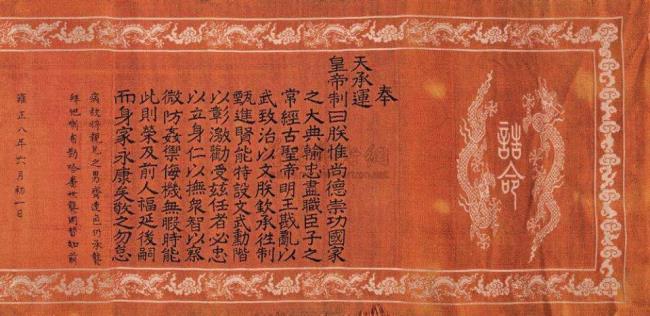 誥命
奉
天承運
皇帝制曰朕惟尚德崇功國家
之大典輸忠盡職臣子之
常經古聖帝明王戡亂以
武致治以文朕欽承往制
甄進賢能特設文武勳階
以彰激勸受茲任者必忠
以立身仁以撫眾智以察
微防姦禦侮機無暇時能
此則榮及前人福延後嗣
而身家永康矣敬之勿怠
病故將親兄之男齊達色仍承襲
拜他喇布勒哈番再襲
雍正八年六月初一日